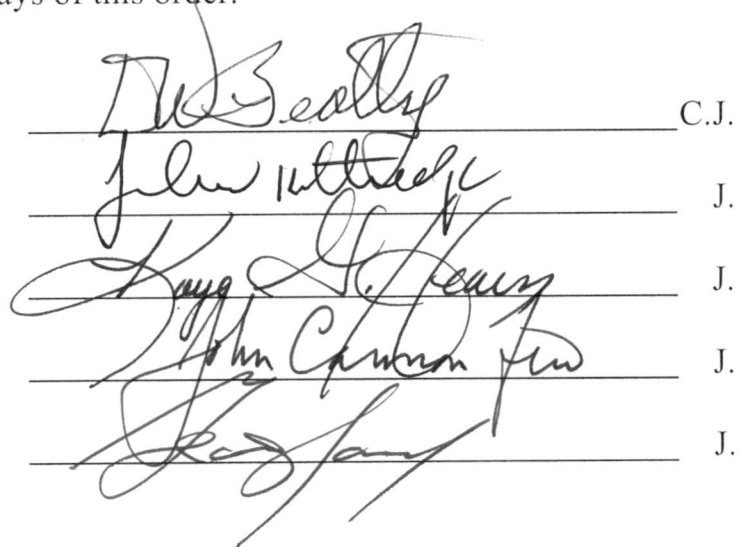 ays of this order.
DW Beatty C.J.
John Kittredge J.
Kaye G. Hearn J.
John Cannon Few J.
J.